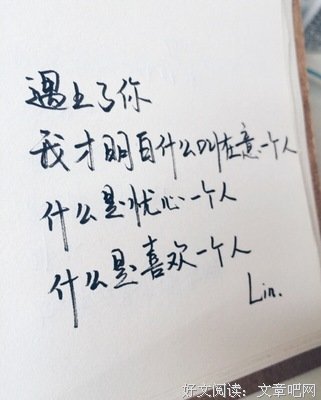 遇上了你
我才明白什么叫在意一个人
什么是忧心一个人
什么是喜欢一个人
Lin.
好文阅读：文章吧网